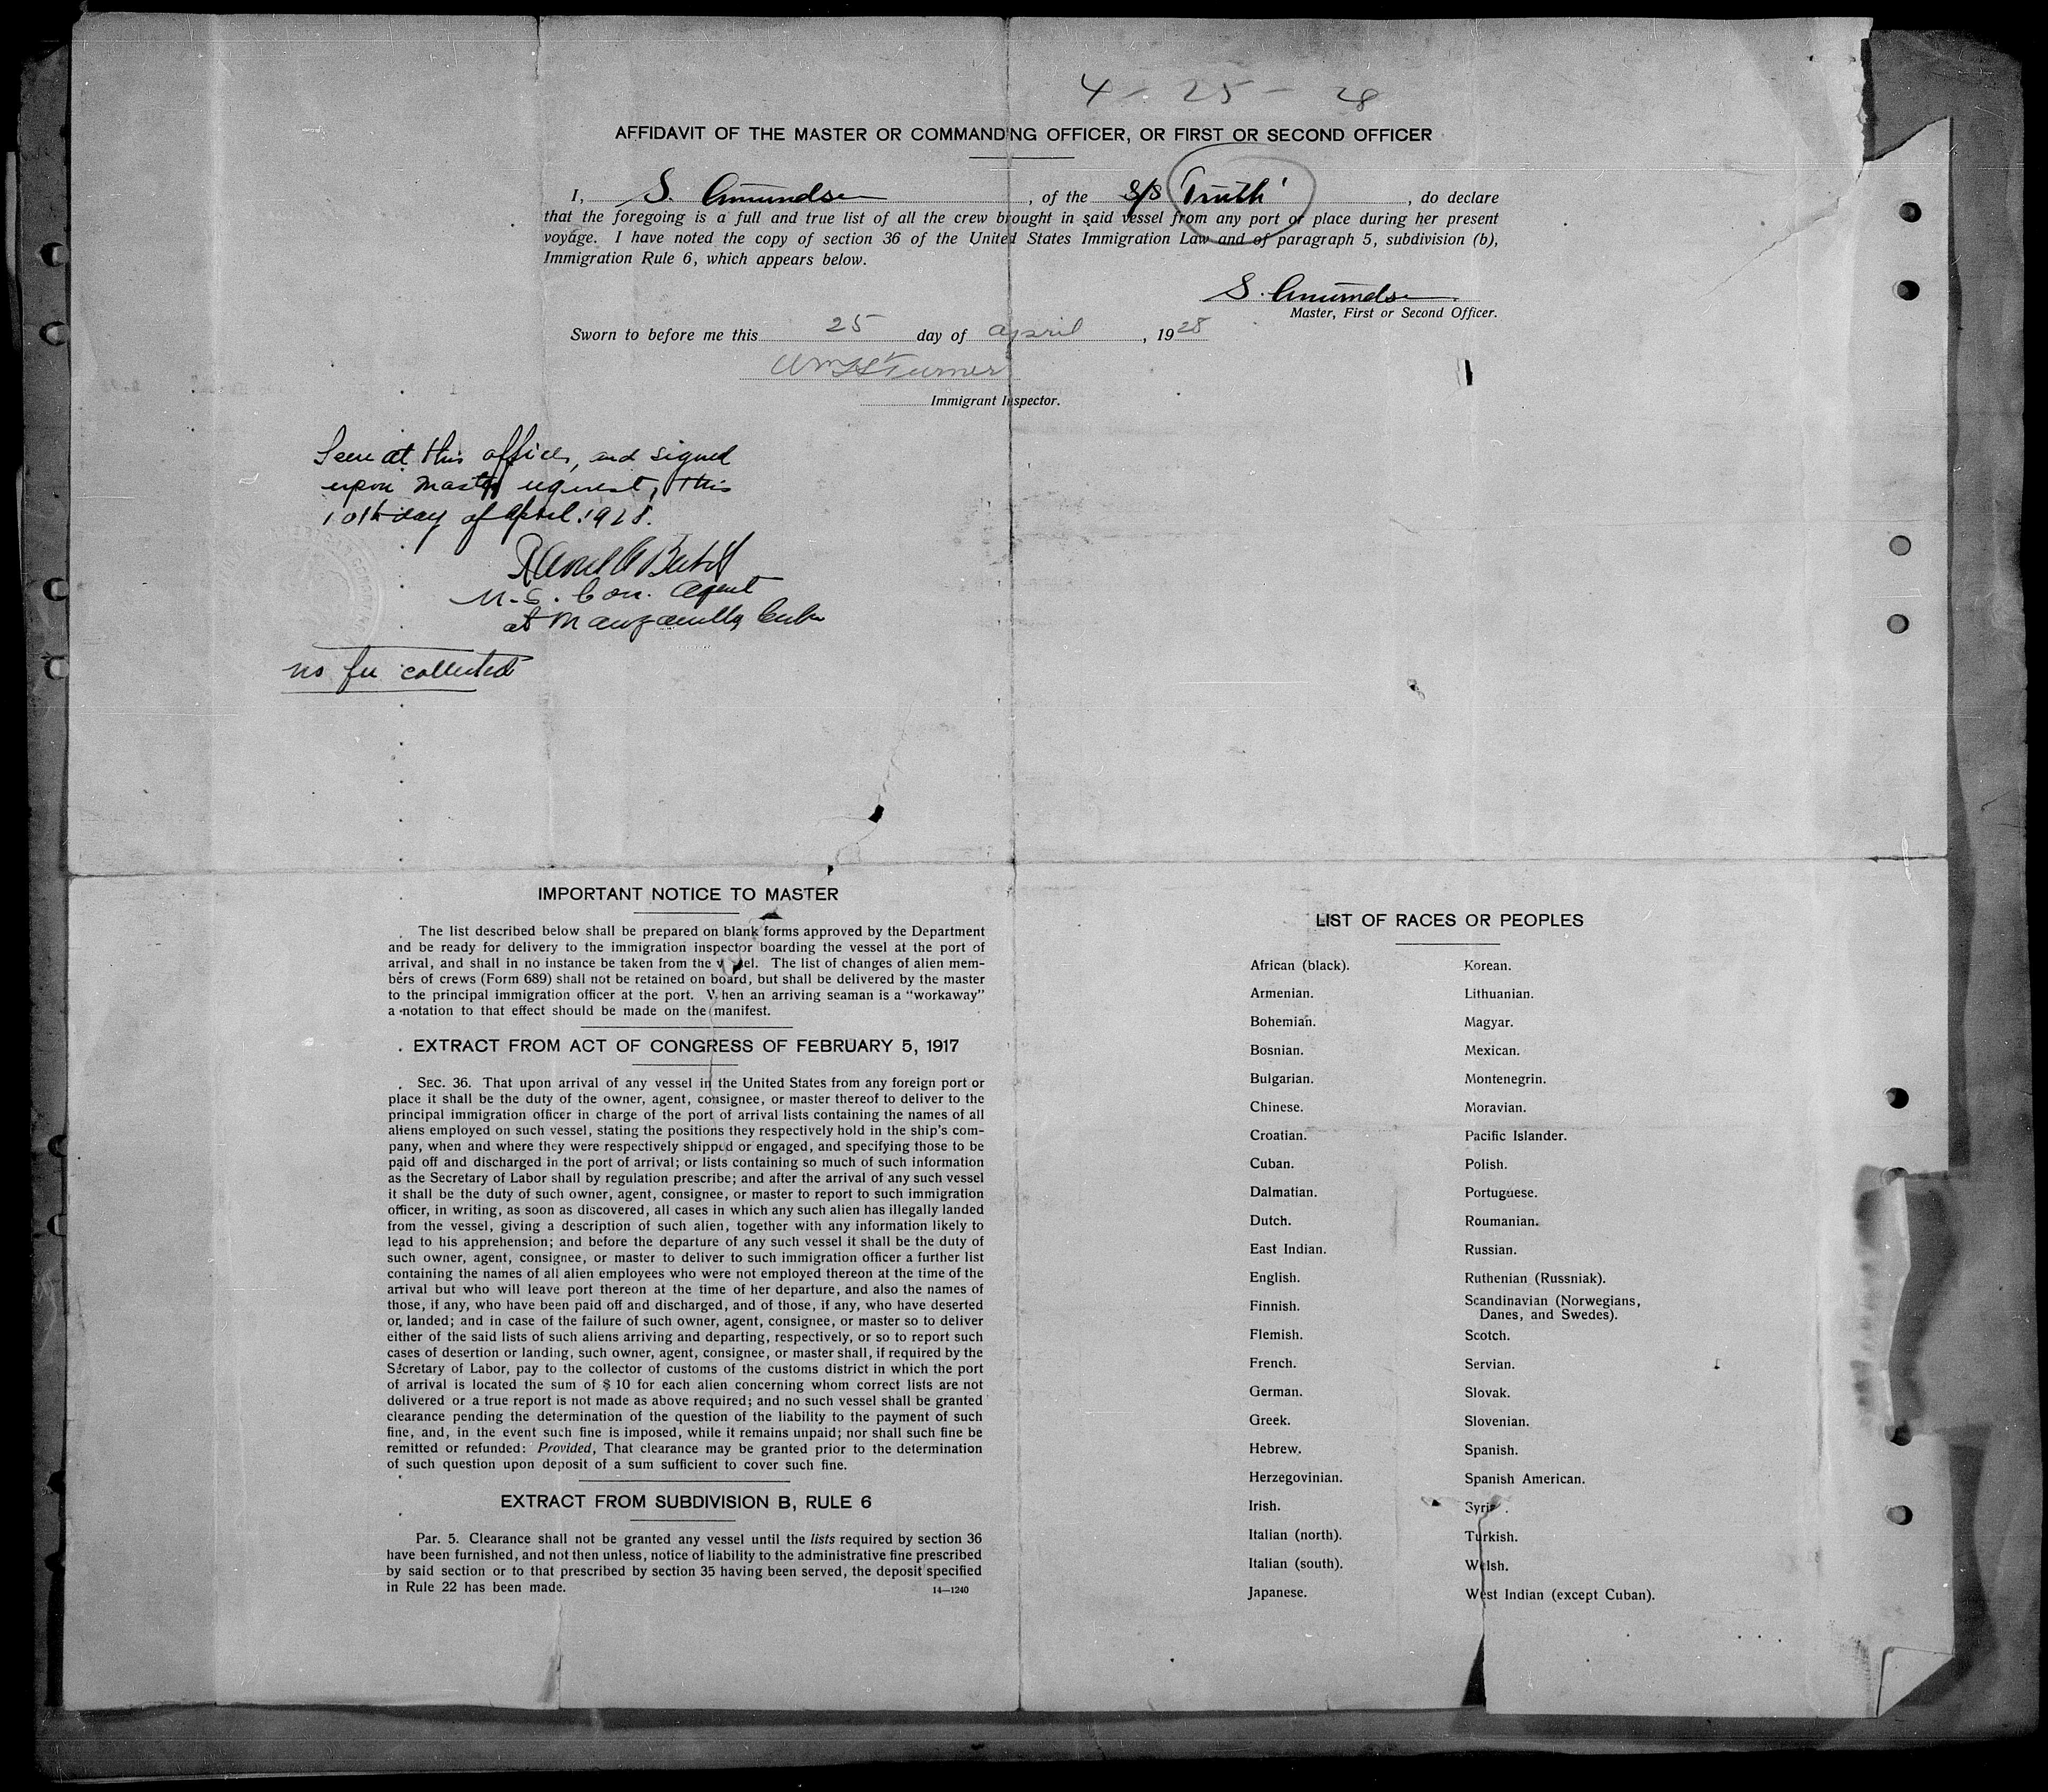 4 - 25 - 28
AFFIDAVIT OF THE MASTER OR COMMANDING OFFICER, OR FIRST OR SECOND OFFICER
I, S. Amundsen, of the S/S 'Truth', do declare
that the foregoing is a full and true list of all the crew brought in said vessel from any port or place during her present
voyage. I have noted the copy of section 36 of the United States Immigration Law and of paragraph 5, subdivision (b),
Immigration Rule 6, which appears below.
S. Amundsen
Master, First or Second Officer.
Sworn to before me this 25 day of april, 1928
Wm H Turner
Immigrant Inspector.
Seen at this office, and signed
upon Masters request, this
10th day of April. 1928.
U.S. Con. Agent
at Manzanillo Cuba
no fee collected
IMPORTANT NOTICE TO MASTER
The list described below shall be prepared on blank forms approved by the Department
and be ready for delivery to the immigration inspector boarding the vessel at the port of
arrival, and shall in no instance be taken from the v el. The list of changes of alien mem-
bers of crews (Form 689) shall not be retained on board, but shall be delivered by the master
to the principal immigration officer at the port. When an arriving seaman is a "workaway"
a notation to that effect should be made on the manifest.
EXTRACT FROM ACT OF CONGRESS OF FEBRUARY 5, 1917
SEC. 36. That upon arrival of any vessel in the United States from any foreign port or
place it shall be the duty of the owner, agent, consignee, or master thereof to deliver to the
principal immigration officer in charge of the port of arrival lists containing the names of all
aliens employed on such vessel, stating the positions they respectively hold in the ship's com-
pany, when and where they were respectively shipped or engaged, and specifying those to be
paid off and discharged in the port of arrival; or lists containing so much of such information
as the Secretary of Labor shall by regulation prescribe; and after the arrival of any such vessel
it shall be the duty of such owner, agent, consignee, or master to report to such immigration
officer, in writing, as soon as discovered, all cases in which any such alien has illegally landed
from the vessel, giving a description of such alien, together with any information likely to
lead to his apprehension; and before the departure of any such vessel it shall be the duty of
such owner, agent, consignee, or master to deliver to such immigration officer a further list
containing the names of all alien employees who were not employed thereon at the time of the
arrival but who will leave port thereon at the time of her departure, and also the names of
those, if any, who have been paid off and discharged, and of those, if any, who have deserted
or landed; and in case of the failure of such owner, agent, consignee, or master so to deliver
either of the said lists of such aliens arriving and departing, respectively, or so to report such
cases of desertion or landing, such owner, agent, consignee, or master shall, if required by the
Secretary of Labor, pay to the collector of customs of the customs district in which the port
of arrival is located the sum of $10 for each alien concerning whom correct lists are not
delivered or a true report is not made as above required; and no such vessel shall be granted
clearance pending the determination of the question of the liability to the payment of such
fine, and, in the event such fine is imposed, while it remains unpaid; nor shall such fine be
remitted or refunded: Provided, That clearance may be granted prior to the determination
of such question upon deposit of a sum sufficient to cover such fine.
EXTRACT FROM SUBDIVISION B, RULE 6
Par. 5. Clearance shall not be granted any vessel until the lists required by section 36
have been furnished, and not then unless, notice of liability to the administrative fine prescribed
by said section or to that prescribed by section 35 having been served, the deposit specified
in Rule 22 has been made.
14—1240
LIST OF RACES OR PEOPLES
African (black).
Armenian.
Bohemian.
Bosnian.
Bulgarian.
Chinese.
Croatian.
Cuban.
Dalmatian.
Dutch.
East Indian.
English.
Finnish.
Flemish.
French.
German.
Greek.
Hebrew.
Herzegovinian.
Irish.
Italian (north).
Italian (south).
Japanese.
Korean.
Lithuanian.
Magyar.
Mexican.
Montenegrin.
Moravian.
Pacific Islander.
Polish.
Portuguese.
Roumanian.
Russian.
Ruthenian (Russniak).
Scandinavian (Norwegians,
Danes, and Swedes).
Scotch.
Servian.
Slovak.
Slovenian.
Spanish.
Spanish American.
Syri .
Turkish.
Welsh.
West Indian (except Cuban).